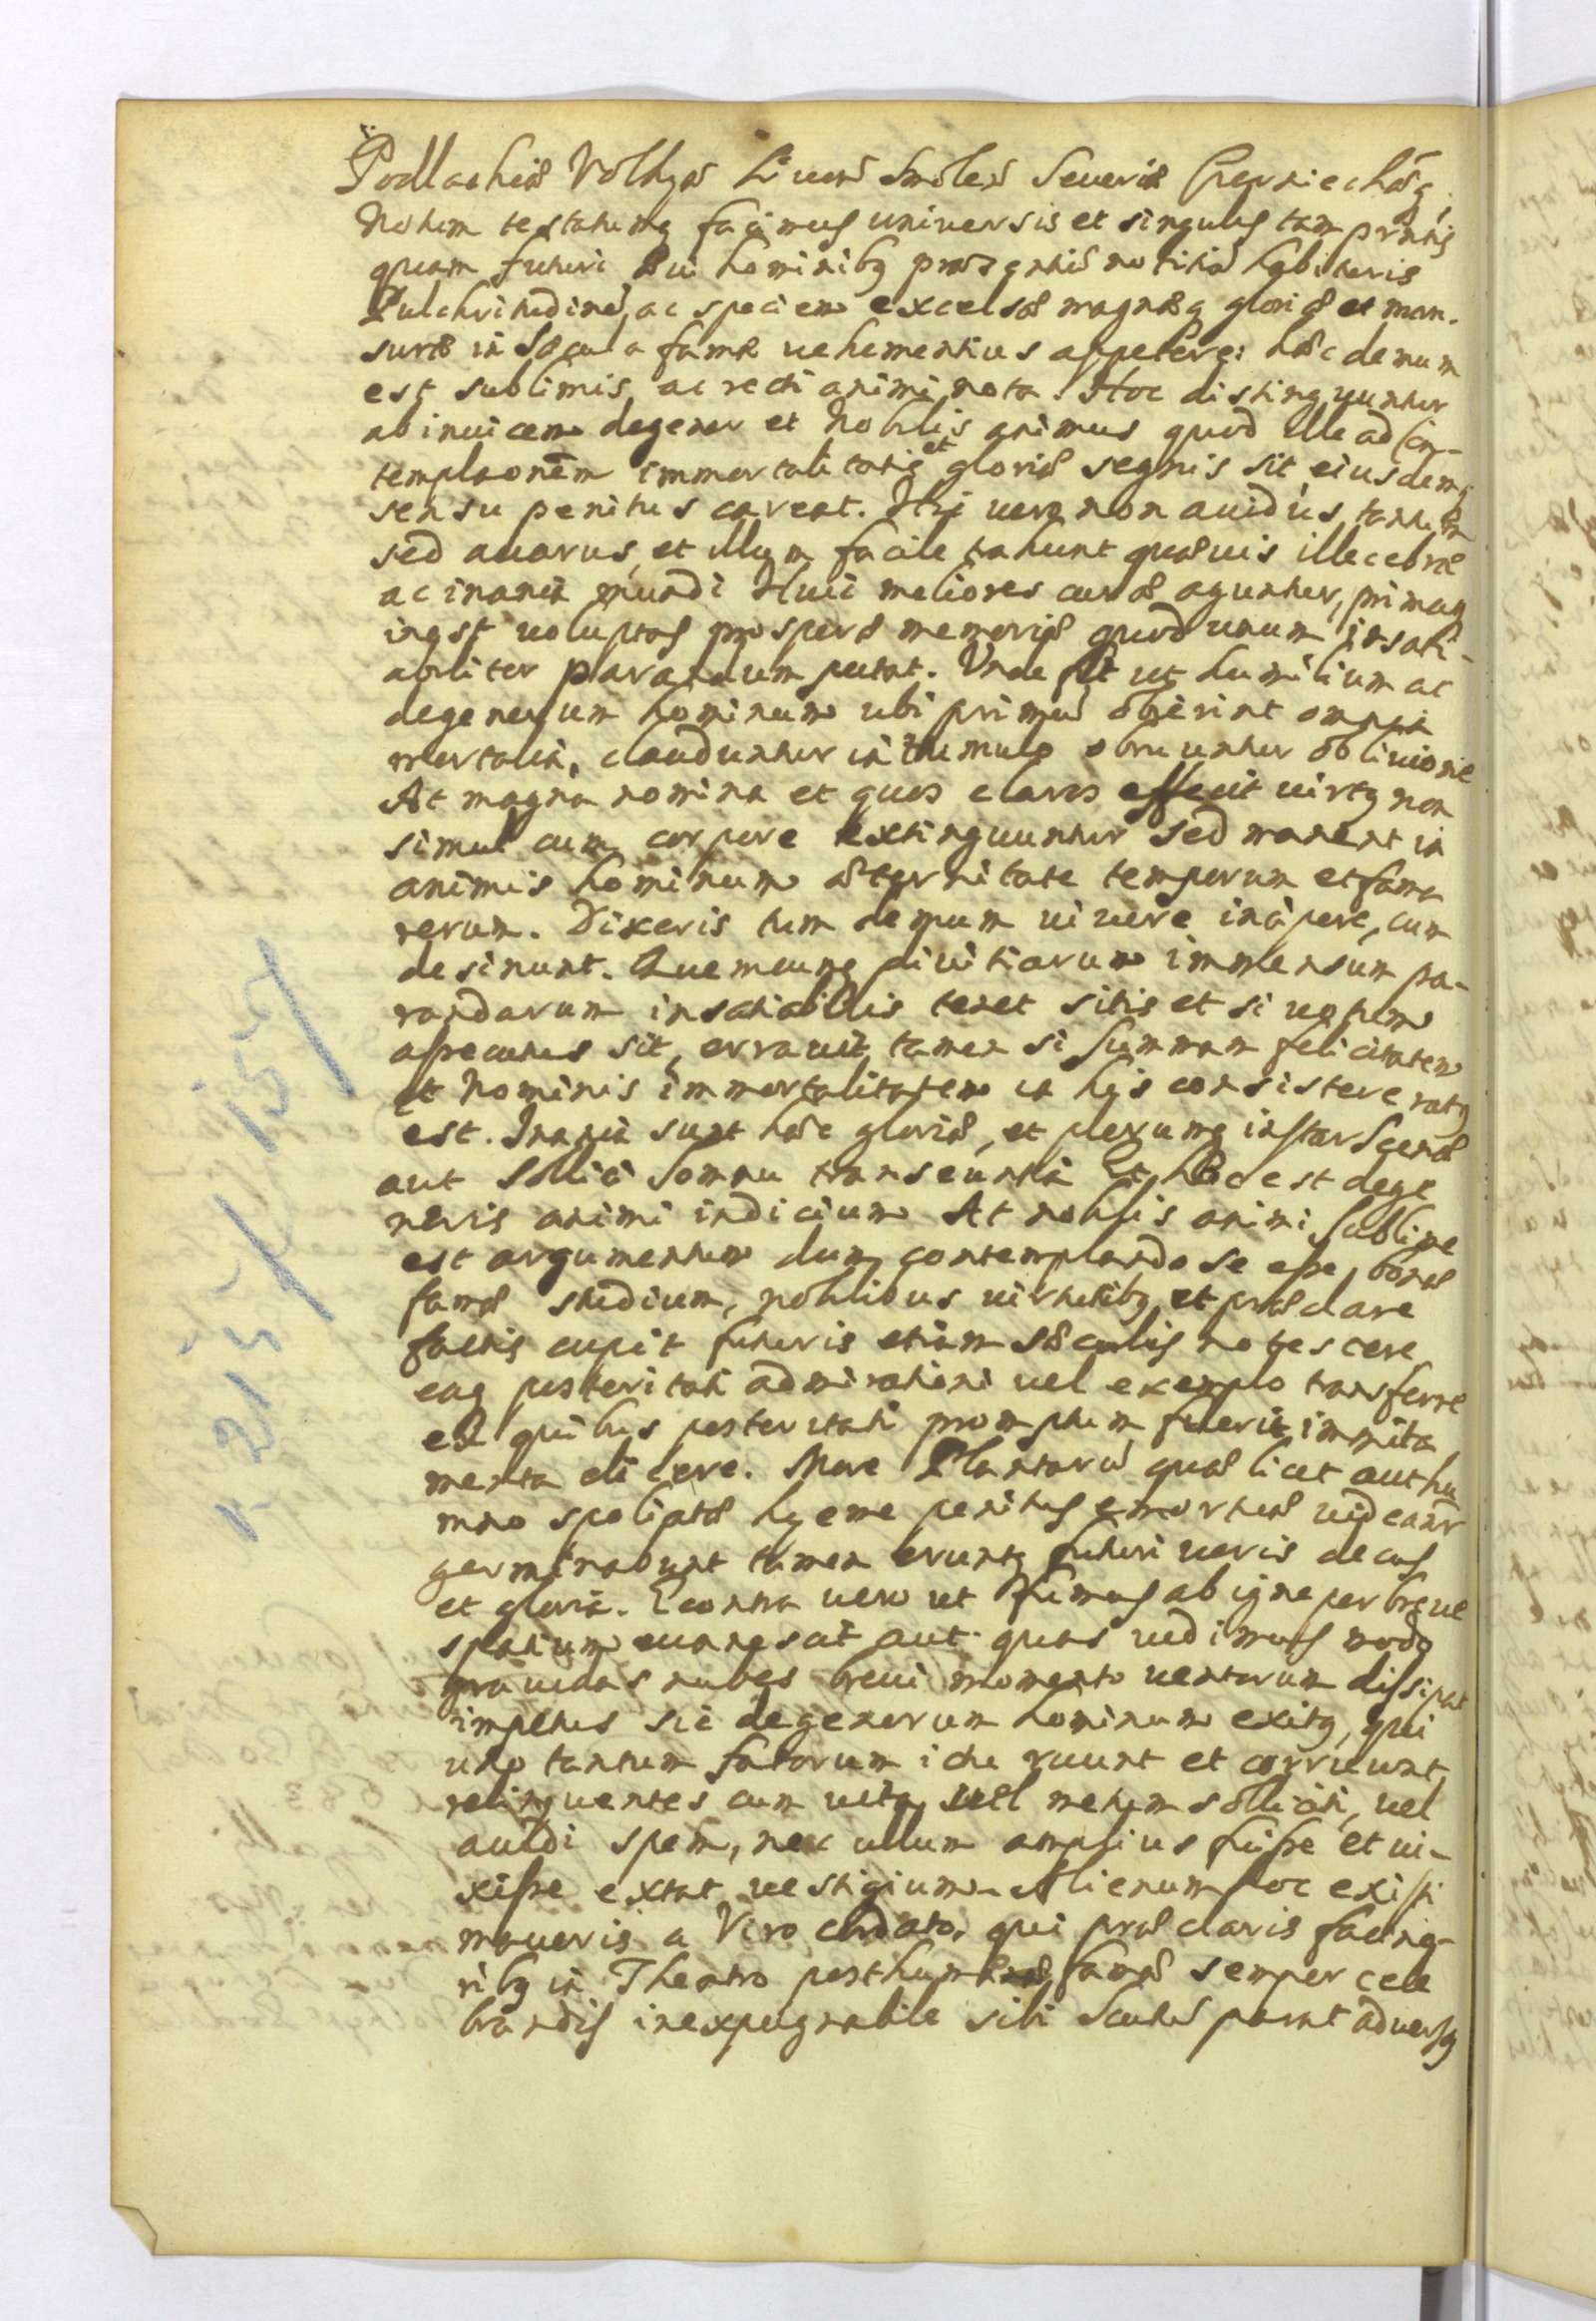 Podlachiæ Volhyn Livon Smolen Severiæ Czerniechoq;
Notum testatumq facimus universis et singulis tam prntis
quam futuri ævi hominibq præsentiū notitiā habituris
Pulchritudinē, ac speciem excelsæ magnæq gloriæ et man-
suræ in sæcula famæ vehementius appetere: hæc demum
est sublimis, ac recti animi nota. Hoc distinguuntur
ab invicem degener et Nobilis animus quod ille ad con-
templaonem immortalitatis et gloriæ segnis sit, eiusdemq
sensu penitus careat. Hij vero non avidus tantum
sed avarus, et illum facile trahunt quævis illecebræ
ac inania mundi Huic meliores curæ aguntur, primaq
inest voluptas prosperæ memoriæ quod unum insati-
abiliter parandum putat. Unde fit ut humilium ac
degenerum hominum ubi primū obierint omnia
mortalia, clauduntur in tumulo obruuntur oblivione
At magna nomina et quos claros effecit virtq non
simul cum corpore extinguuntur sed manent in
animis hominum æternitate temporum et fama
rerum. Dixeris tum demum vivere incipere, cum
desinunt. Quemcunq divitiarum immensum pa-
randarum insatiabilis tenet sitis et si votum
assecutus sit, erravit tamen si summam felicitatem
et Nominis immortalitatem in hijs consistere ratq
est. Inania sunt hæc gloriæ, et plerumq instar Scenæ
aut Solliciti Somni transeuntia Et hoc est dege
neris animi indicium At nobilis animi sublime
est argumentum dum contemplando se esse, bonæ
famæ studium, nobilibus virtutibq et præclare
factis cupit futuris etiam sæculis notescere
eaq posteritati admirationi vel exemplo transferre
ex quibus posteritati promptum fuerit immita
menta elicere. More Plantarū quæ licet authu
mno spoliatæ hyeme penitus emortuæ videantr
germinabunt tamen eruntq futuri veris decus
et gloria. E contra vero ut Fumus ab igne per breve
spatium evanescit aut quas vidimus modo
gravidas nubes brevi momento ventorum dissipat
impetus sic degenerum hominum exitq, qui
uno tantum fatorum ictu ruunt et corruunt
relinquentes cum vita, vel metum solliciti, vel
avidi spem, nec ullum amplius fuisse et vi-
xisse extat vestigium. Alienum hoc existi
maveris a Viro cordato, qui præclaris facino-
ribq in Theatro posthumæ famæ semper cele
brandis inexpugnabile sibi Scutū parat adversq